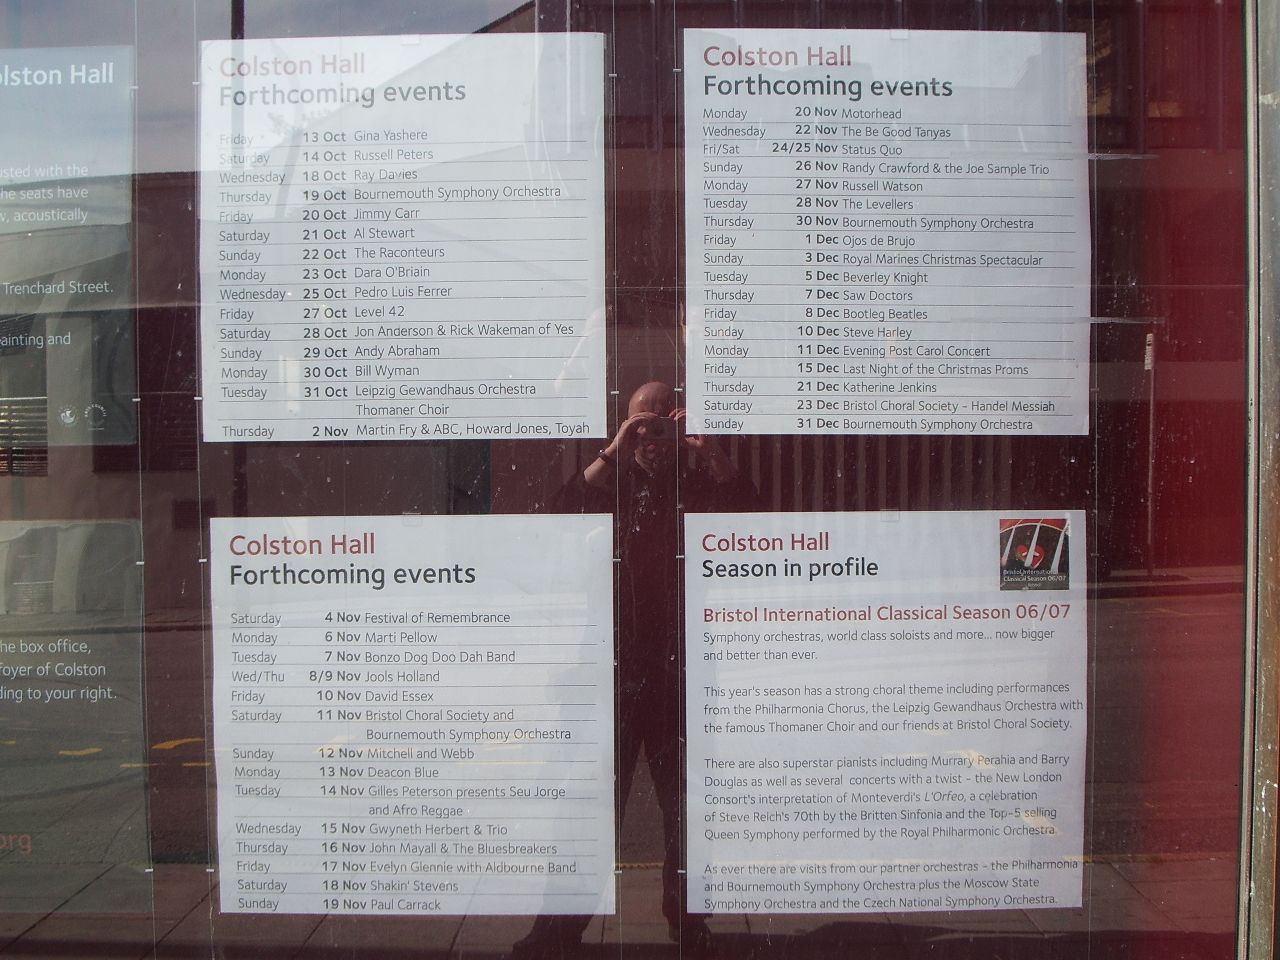 olston Hall
usted with the
he seats have
w, acoustically
Trenchard Street.
ainting and
he box office,
foyer of Colston
ding to your right.
org
Colston Hall
Forthcoming events
Friday 13 Oct Gina Yashere
Saturday 14 Oct Russell Peters
Wednesday 18 Oct Ray Davies
Thursday 19 Oct Bournemouth Symphony Orchestra
Friday 20 Oct Jimmy Carr
Saturday 21 Oct Al Stewart
Sunday 22 Oct The Raconteurs
Monday 23 Oct Dara O'Briain
Wednesday 25 Oct Pedro Luis Ferrer
Friday 27 Oct Level 42
Saturday 28 Oct Jon Anderson & Rick Wakeman of Yes
Sunday 29 Oct Andy Abraham
Monday 30 Oct Bill Wyman
Tuesday 31 Oct Leipzig Gewandhaus Orchestra
Thomaner Choir
Thursday 2 Nov Martin Fry & ABC, Howard Jones, Toyah
Colston Hall
Forthcoming events
Monday 20 Nov Motorhead
Wednesday 22 Nov The Be Good Tanyas
Fri/Sat 24/25 Nov Status Quo
Sunday 26 Nov Randy Crawford & the Joe Sample Trio
Monday 27 Nov Russell Watson
Tuesday 28 Nov The Levellers
Thursday 30 Nov Bournemouth Symphony Orchestra
Friday 1 Dec Ojos de Brujo
Sunday 3 Dec Royal Marines Christmas Spectacular
Tuesday 5 Dec Beverley Knight
Thursday 7 Dec Saw Doctors
Friday 8 Dec Bootleg Beatles
Sunday 10 Dec Steve Harley
Monday 11 Dec Evening Post Carol Concert
Friday 15 Dec Last Night of the Christmas Proms
Thursday 21 Dec Katherine Jenkins
Saturday 23 Dec Bristol Choral Society - Handel Messiah
Sunday 31 Dec Bournemouth Symphony Orchestra
Colston Hall
Forthcoming events
Saturday 4 Nov Festival of Remembrance
Monday 6 Nov Marti Pellow
Tuesday 7 Nov Bonzo Dog Doo Dah Band
Wed/Thu 8/9 Nov Jools Holland
Friday 10 Nov David Essex
Saturday 11 Nov Bristol Choral Society and
Bournemouth Symphony Orchestra
Sunday 12 Nov Mitchell and Webb
Monday 13 Nov Deacon Blue
Tuesday 14 Nov Gilles Peterson presents Seu Jorge
and Afro Reggae
Wednesday 15 Nov Gwyneth Herbert & Trio
Thursday 16 Nov John Mayall & The Bluesbreakers
Friday 17 Nov Evelyn Glennie with Aldbourne Band
Saturday 18 Nov Shakin' Stevens
Sunday 19 Nov Paul Carrack
Colston Hall
Season in profile
Bristol International
Classical Season 06/07
Bristol International Classical Season 06/07
Symphony orchestras, world class soloists and more... now bigger
and better than ever.
This year's season has a strong choral theme including performances
from the Philharmonia Chorus, the Leipzig Gewandhaus Orchestra with
the famous Thomaner Choir and our friends at Bristol Choral Society.
There are also superstar pianists including Murrary Perahia and Barry
Douglas as well as several concerts with a twist - the New London
Consort's interpretation of Monteverdi's L'Orfeo, a celebration
of Steve Reich's 70th by the Britten Sinfonia and the Top-5 selling
Queen Symphony performed by the Royal Philharmonic Orchestra.
As ever there are visits from our partner orchestras - the Philharmonia
and Bournemouth Symphony Orchestra plus the Moscow State
Symphony Orchestra and the Czech National Symphony Orchestra.